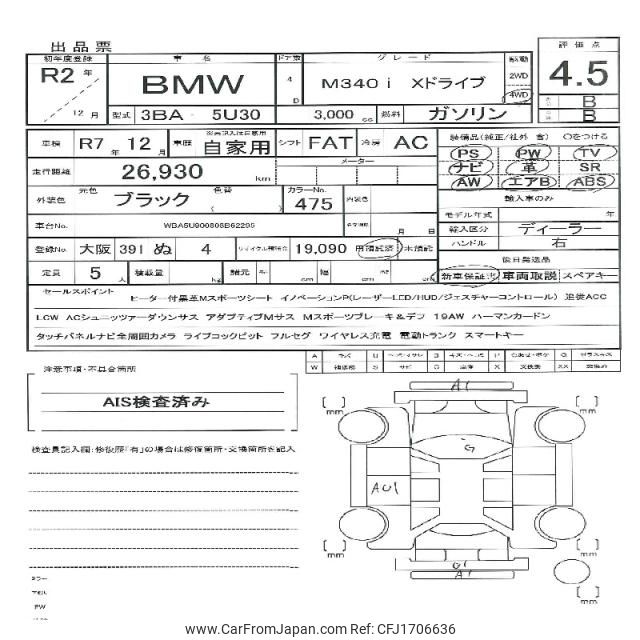 出品票
初年度登録 車名 ドア数 グレード 駆動 評価点
R2年 BMW 4 D M340i Xドライブ 2WD 4WD 4.5
12月 型式 3BA - 5U30 3,000 cc 燃料 ガソリン B
B
車検 R7年 12月 車歴 自家用 シフト FAT 冷房 AC 装備品(純正/社外 含) ○をつける
走行距離 26,930 km メーター PS PW TV
ナビ 革 SR
AW エアB ABS
外装色 元色 ブラック 色替 ( ) カラーNo. 475 内装色 輸入車のみ
モデル年式 年
車台No. 月 日 輸入区分 ディーラー
登録No. 大阪 391 ぬ 4 19,090 ハンドル 右
後日発送品
定員 5人 積載量 kg 諸元 長 cm 幅 cm 高 cm 新車保証書 車両取説 スペアキー
セールスポイント
ヒーター付黒革Mスポーツシート イノベーションP(レーザーLED/HUD/ジェスチャーコントロール) 追従ACC
LCW ACシュニッツァーダウンサス アダプティブMサス Mスポーツブレーキ&デフ 19AW ハーマンカードン
タッチパネルナビ全周囲カメラ ライブコックピット フルセグ ワイヤレス充電 電動トランク スマートキー
注意事項・不具合箇所
AIS検査済み
検査員記入欄:修復歴「有」の場合は修復箇所・交換箇所を記入
A1
[ ] mm
[ ] mm
G
AU1
[ ] mm
[ ] mm
G1
A1
[ ] mm
PW
www.CarFromJapan.com Ref: CFJ1706636